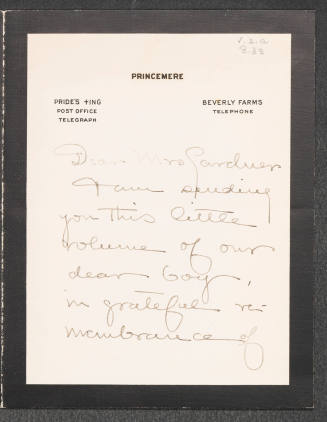 V.2.a
PRINCEMERE
PRIDE'S +ING
POST OFFICE
TELEGRAPH
BEVERLY FARMS
TELEPHONE
Dear Mrs Gardner
I am sending
you this little
volume of our
dear boy,
in grateful re-
membrance of